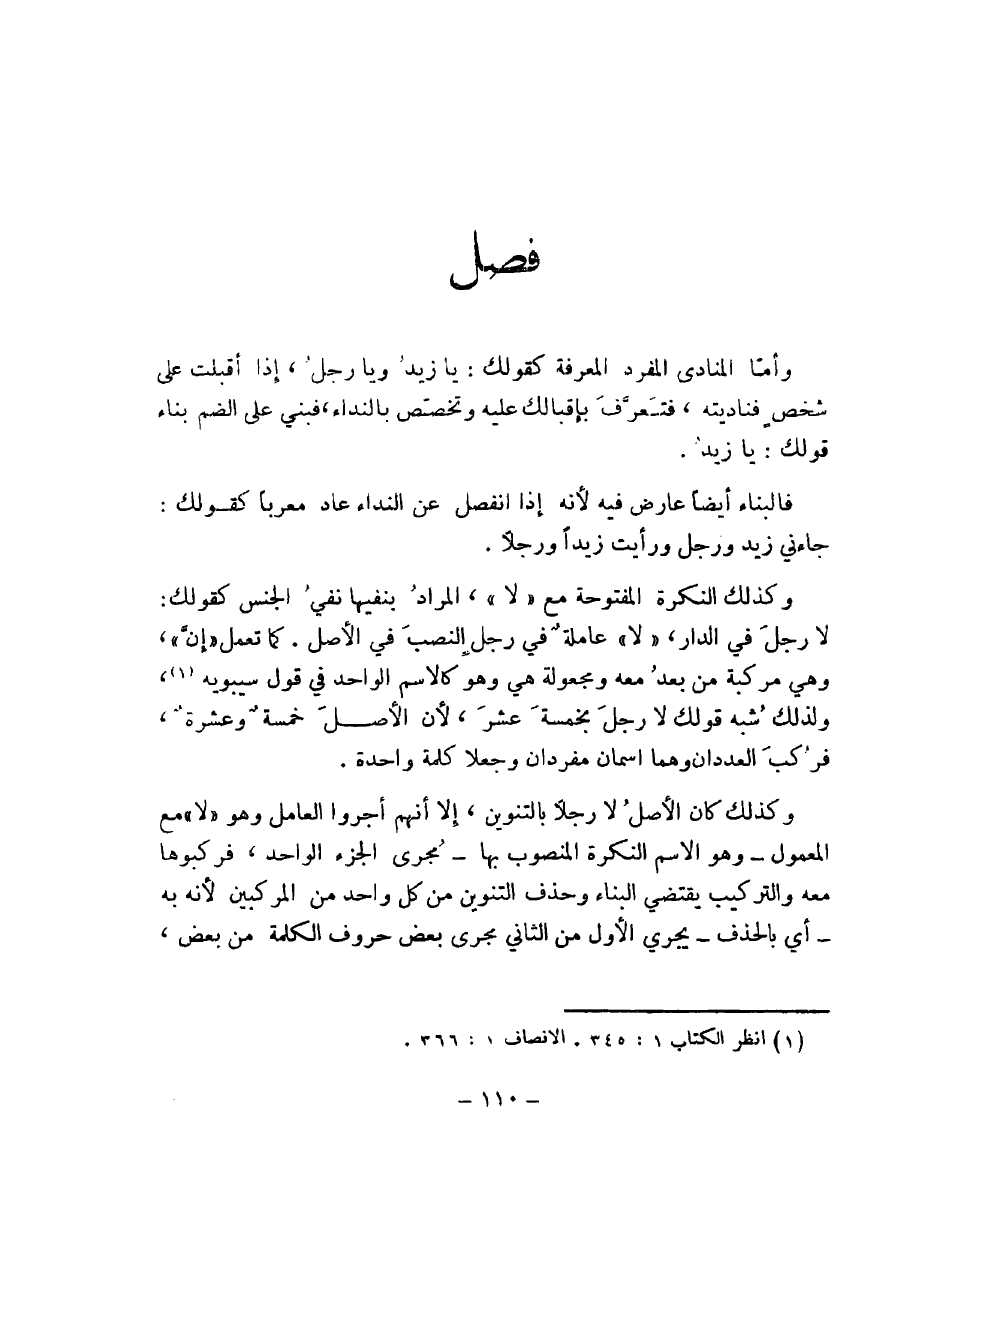 فصل
وأمّا المنادى المفرد المعرفة كقولك : يا زيدُ ويا رجلُ ، إذا أقبلت على
شخصٍ فناديته ، فتَعرَّفَ بإقبالك عليه وتخصّص بالنداء،فبني على الضم بناء
قولك : يا زيدُ .
فالبناء أيضاً عارض فيه لأنه إذا انفصل عن النداء عاد معرباً كقـولك :
جاءني زيد ورجل ورأيت زيداً ورجلاً .
وكذلك النكرة المفتوحة مع « لا » ، المرادُ بنفيها نفيُ الجنس كقولك:
لا رجلَ في الدار، « لا» عاملةٌ في رجلٍ النصبَ في الأصل . كما تعمل«إنَّ»،
وهي مركبة من بعدُ معه ومجعولة هي وهو كالاسم الواحد في قول سيبويه (١)،
ولذلك شُبه قولك لا رجلَ بخمسةَ عشرَ ، لأن الأصـــلَ خمسةٌ وعشرةٌ ،
فرُكبَ العددان وهما اسمان مفردان وجعلا كلمة واحدة .
وكذلك كان الأصلُ لا رجلاً بالتنوين ، إلا أنهم أجروا العامل وهو «لا»مع
المعمول ـ وهو الاسم النكرة المنصوب بها ـ مُجرى الجزء الواحد ، فركبوها
معه والتركيب يقتضي البناء وحذف التنوين من كل واحد من المركبين لأنه به
ـ أي بالحذف ـ يجري الأول من الثاني مجرى بعض حروف الكلمة من بعض ،
(١) انظر الكتاب ١ : ٣٤٥ . الانصاف ١ : ٣٦٦ .
– ١١٠ –